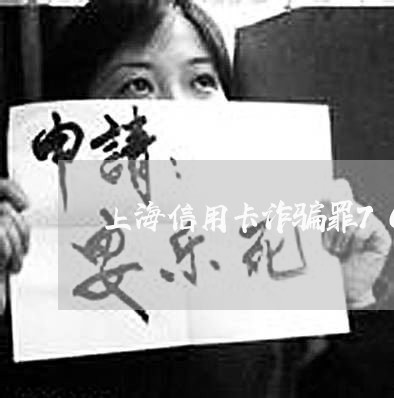 申請：
上海信用卡诈骗罪7
安乐死